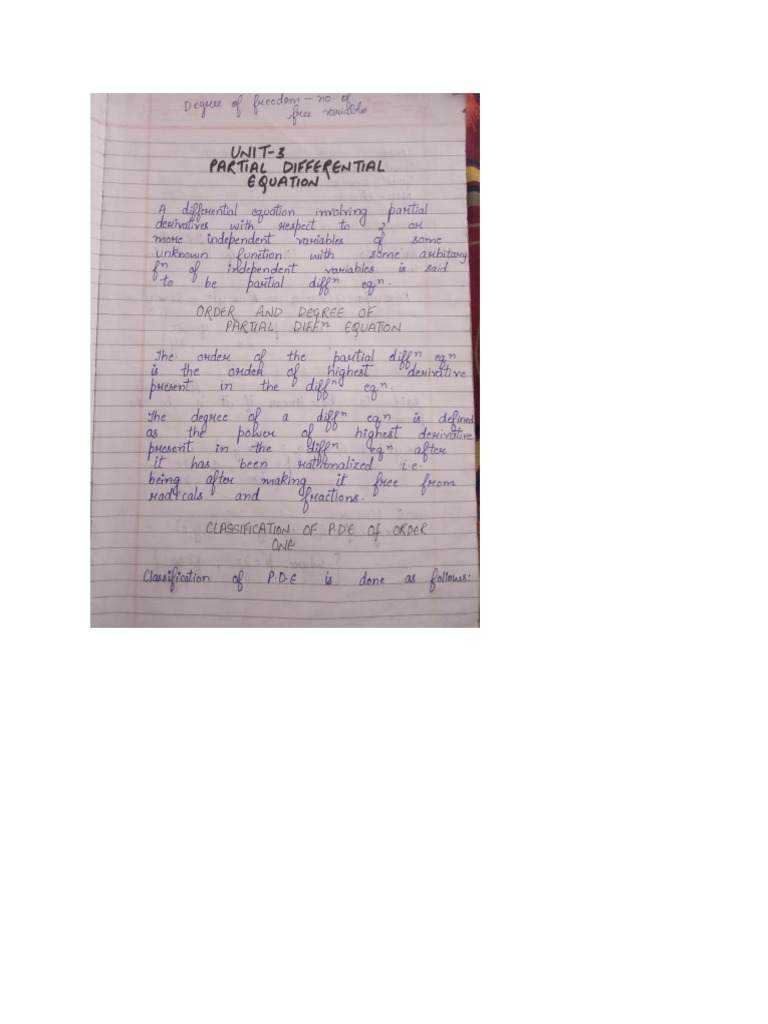 Degree of freedom - no. of
free variable
UNIT-3
PARTIAL DIFFERENTIAL
EQUATION
A differential equation involving partial
derivatives with respect to 2 or
more independent variables of some
unknown function with some arbitary
fⁿ of independent variables is said
to be partial diffⁿ eqⁿ.
ORDER AND DEGREE OF
PARTIAL DIFFⁿ EQUATION
The order of the partial diffⁿ eqⁿ
is the order of highest derivative
present in the diffⁿ eqⁿ.
The degree of a diffⁿ eqⁿ is defined
as the power of highest derivative
present in the diffⁿ eqⁿ after
it has been i.e.
being after making it free from
radicals and fractions.
CLASSIFICATION OF P.D.E Of ORDER
ONE
Classification of P.D.E is done as follows: